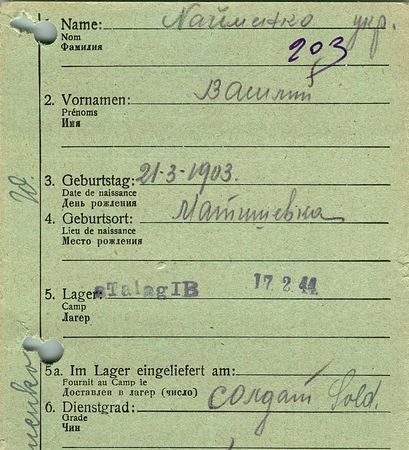 1. Name: Найменко укр.
Nom
Фамилия
203
2. Vornamen: Василий
Prénoms
Имя
3. Geburtstag: 21-3-1903.
Date de naissance
День рождения
4. Geburtsort:
Lieu de naissance
Место рождения
5. Lager: StalagIB 17.2.44
Camp
Лагер
5a. Im Lager eingeliefert am:
Fournit au Camp le
Доставлен в лагер (число)
6. Dienstgrad: солдат Sold.
Grade
Чин